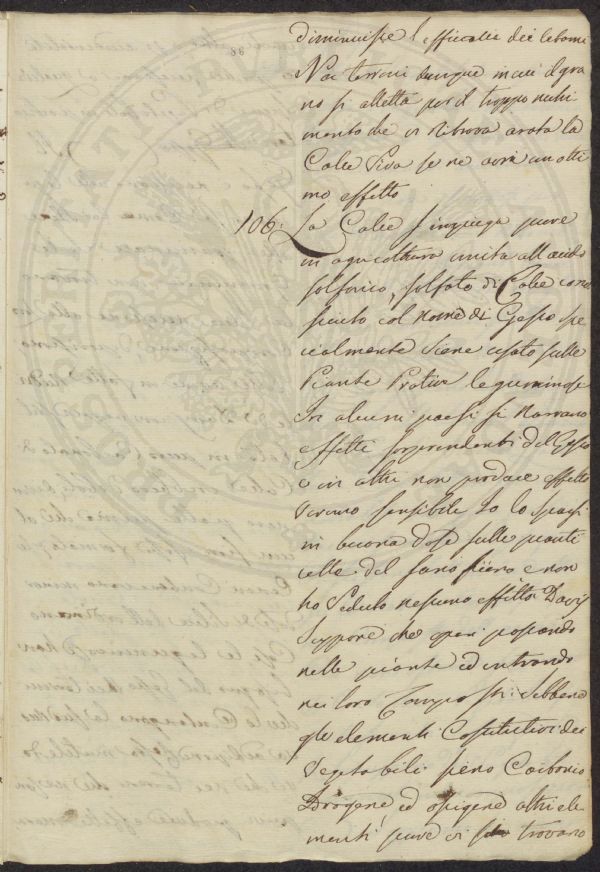 diminuisse l'efficacia dei letami
Nei terreni dunque in cui il gra
no si alletta per il troppo nutri
mento che vi ritrova arata la
Calce Viva se ne avrà un otti
mo effetto
106. La Calce s'impiega pure
in agricoltura unita all'acido
solforico, solfato di Calce cono
sciuto col nome di Gesso spe
cialmente viene usato sulle
Piante Prative leguminose
In alcuni paesi si narrano
effetti sorprendenti del Gesso
e in altri non produce effetto
veruno sensibile Io lo sparsi
in buona dose sulle pianti
celle del sano fieno e non
ho veduto nessuno effetto Davis
Suppone che operi passando
nelle piante ed entrando
nei loro Composti: Sebbene
gli elementi Costitutivi dei
Vegetabili sieno Carbonio
Drogene ed ossigene altri ele
menti pure vi si trovano
86